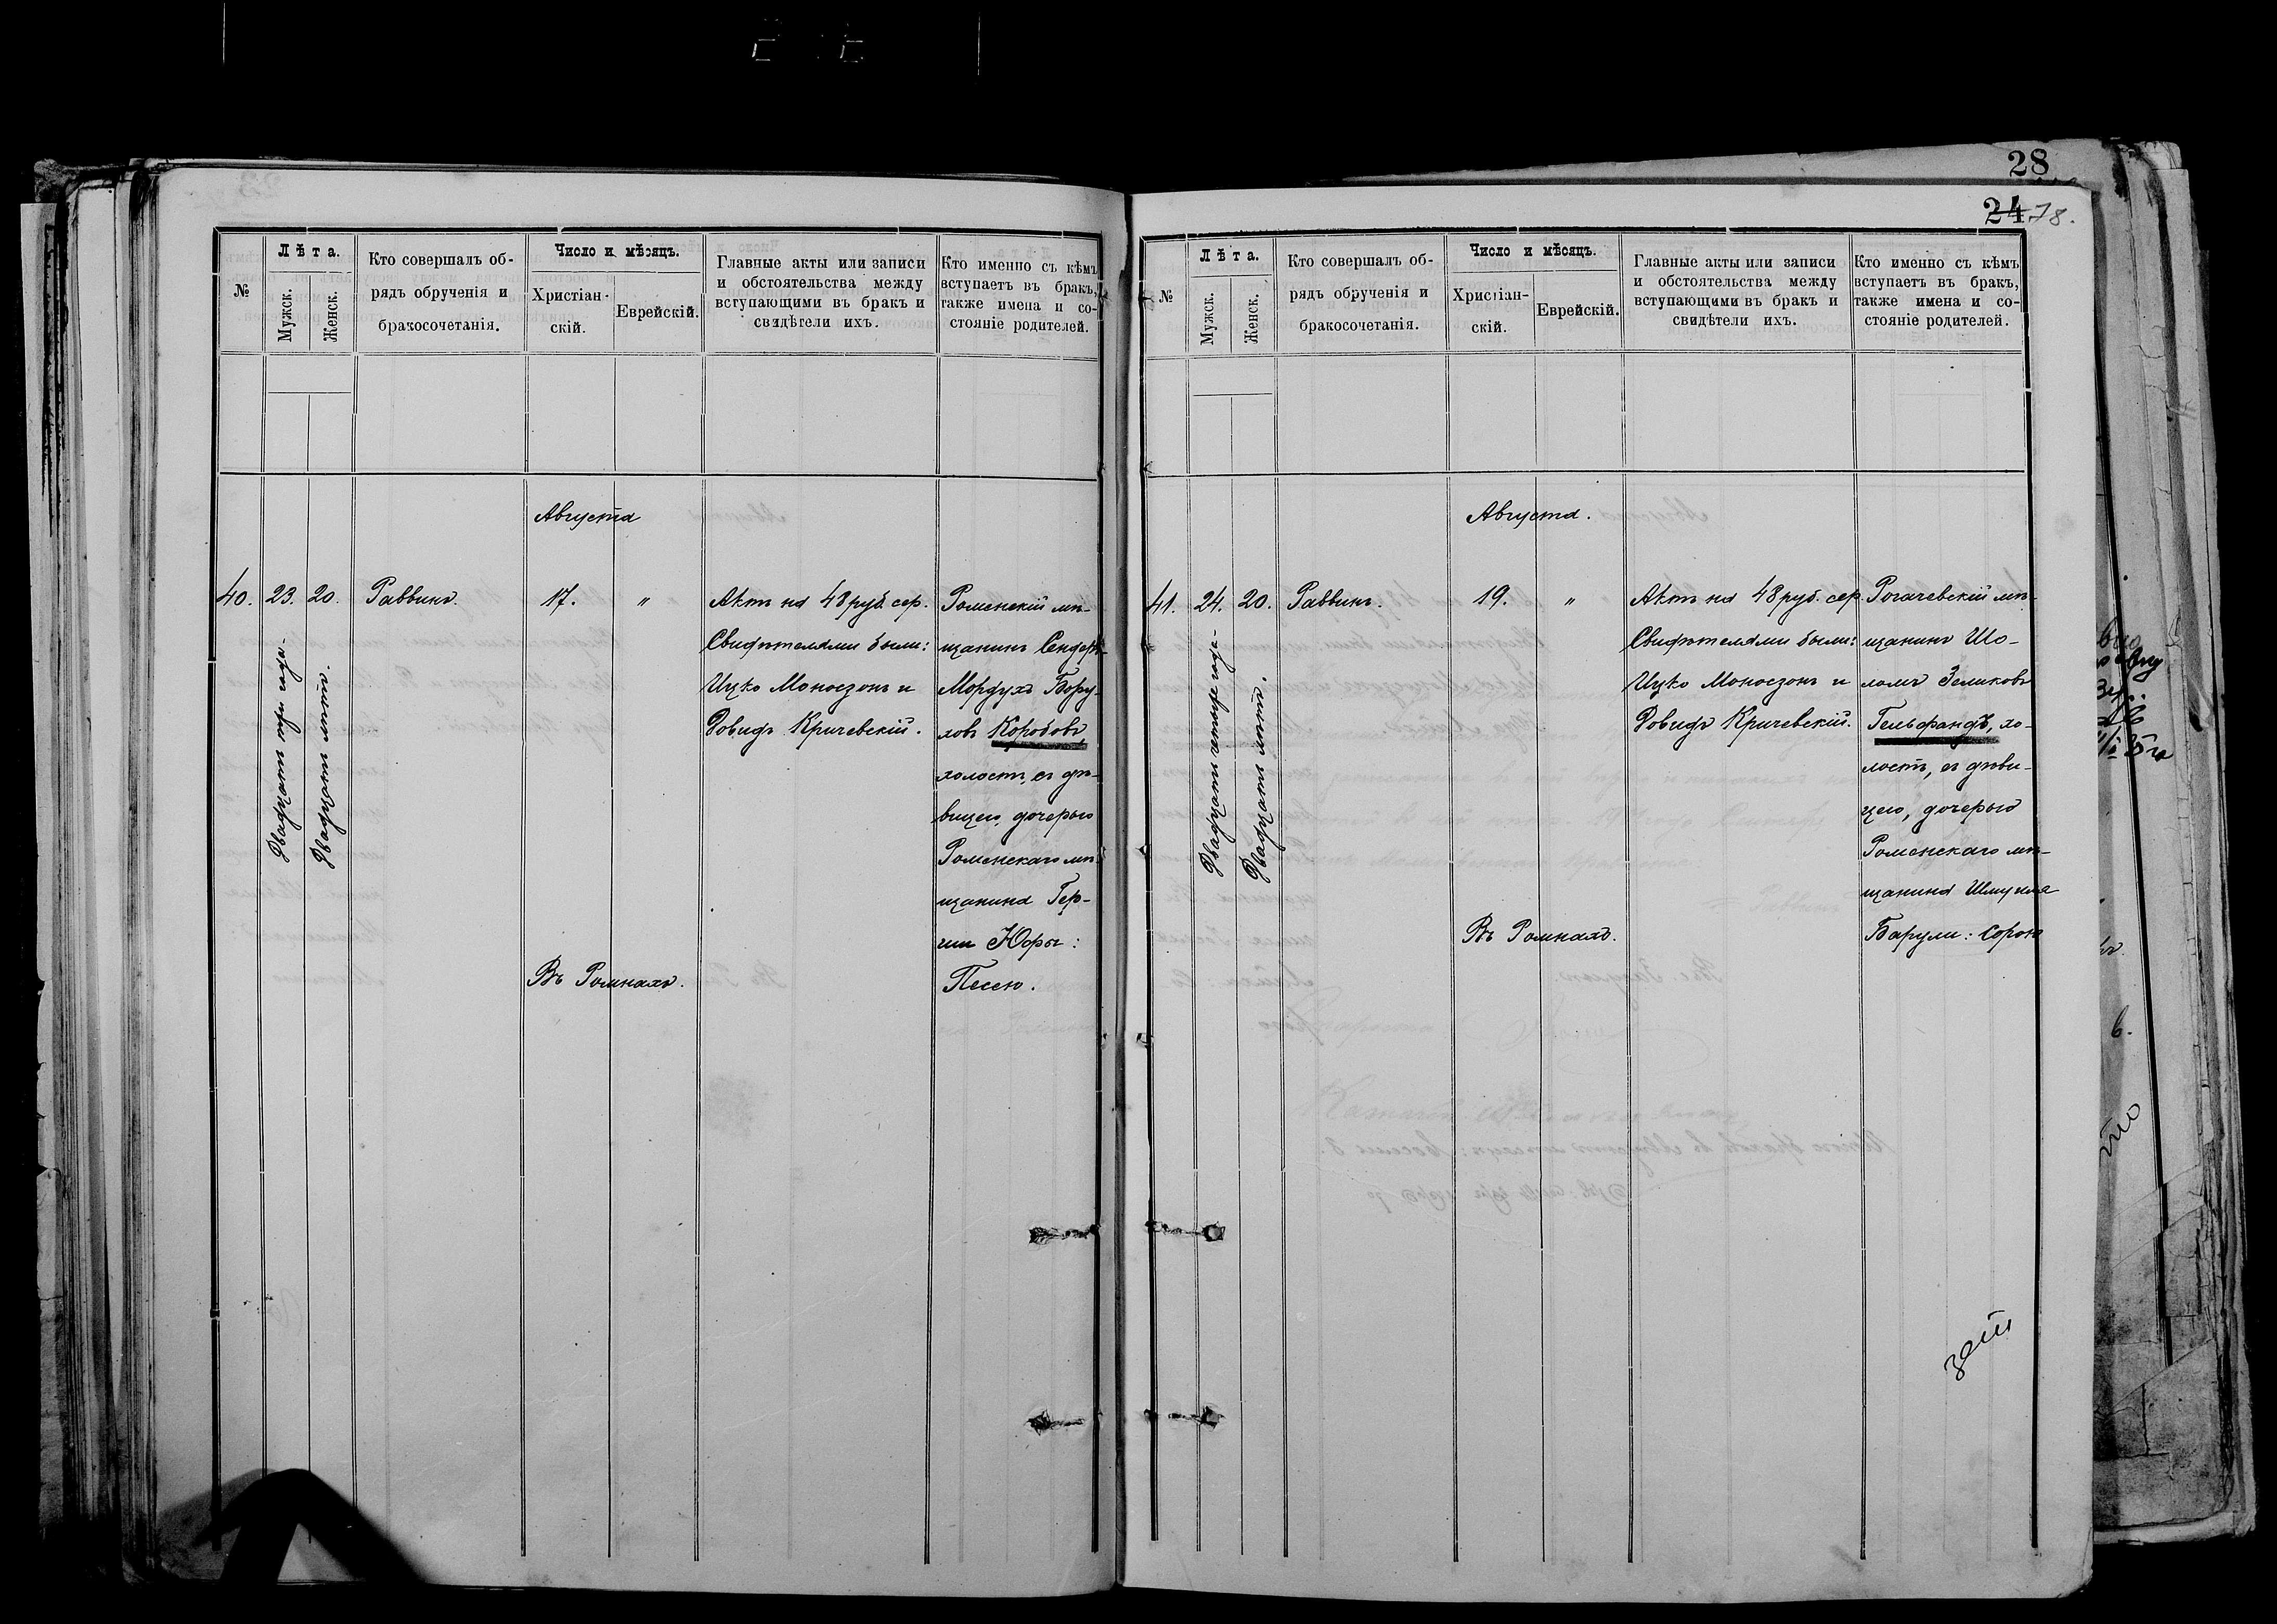 №
Лѣта.
Мужск.
Женск.
Кто совершалъ об-
рядъ обрученія и
бракосочетанія.
Число и мѣсяцъ.
Христіан-
скій.
Еврейскій.
Главные акты или записи
и обстоятельства между
вступающими въ бракъ и
свидѣтели ихъ.
Кто именно съ кѣмъ
вступаетъ въ бракъ,
также имена и со-
стояніе родителей.
Августа
40.
23.
Двадцать три года.
20.
Двадцать лѣтъ.
Раввинъ.
17.
"
Въ Ромнахъ.
Актъ на 48 руб. сер.
Свидѣтелями были:
Ицко Моносзонъ и
Довидъ Кричевскій.
Роменскій мѣ-
щанинъ Сендеръ-
Мордухъ Бору-
ховъ Коробовъ,
холостъ, съ дѣ-
вицею, дочерью
Роменскаго мѣ-
щанина Гер-
ши Юфы:
Песею.
28
24
78.
№
Лѣта.
Мужск.
Женск.
Кто совершалъ об-
рядъ обрученія и
бракосочетанія.
Число и мѣсяцъ.
Христіан-
скій.
Еврейскій.
Главные акты или записи
и обстоятельства между
вступающими въ бракъ и
свидѣтели ихъ.
Кто именно съ кѣмъ
вступаетъ въ бракъ,
также имена и со-
стояніе родителей.
Августа.
41.
24.
Двадцать четыре года.
20.
Двадцать лѣтъ.
Раввинъ.
19.
"
Въ Ромнахъ.
Актъ на 48 руб. сер.
Свидѣтелями были:
Ицко Моносзонъ и
Довидъ Кричевскій.
Рогачевскій мѣ-
щанинъ Шо-
ломъ Зеликовъ
Гельфандъ, хо-
лостъ, съ дѣви-
цею, дочерью
Роменскаго мѣ-
щанина Шмуиля
Барули: Сорою